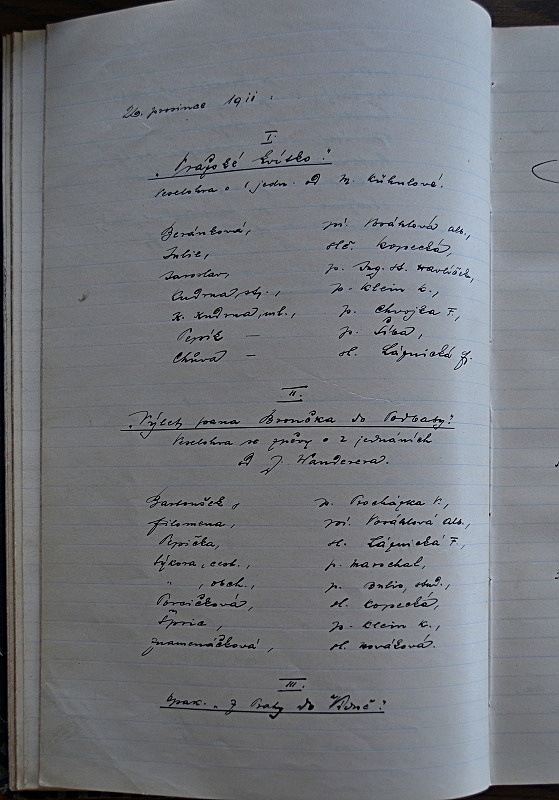 26. prosince 1911.
I.
„Pražské kvítko."
Veselohra o 1 jedn. od M. Kühnlové.
Beránková, pí. Vráblová Alb.,
Julie, slč. Kopecká,
Jaroslav, p. Ing. St. Havlíček,
Kudrna, st., p. Klein K.,
K. Kudrna, ml., p. Chvojka F.,
Pepík — p. Šiba,
Chůva — sl. Láznická
II.
„Výlet pana Broučka do Podbaby."
Veselohra se zpěvy o 2 jednáních
od J. Wanderera.
Bartoušek, p. Procházka V.,
Filomena, pí. Vráblová Alb.,
Pepička, sl. Láznická F.,
Sýkora, cest., p. Maršchal,
" , obch., p. stud.,
Porcičková, sl. Kopecká,
Špric, p. Klein K.,
Znamenáčková, sl. Nováková.
III.
Opak. „Z Prahy do Vídně."